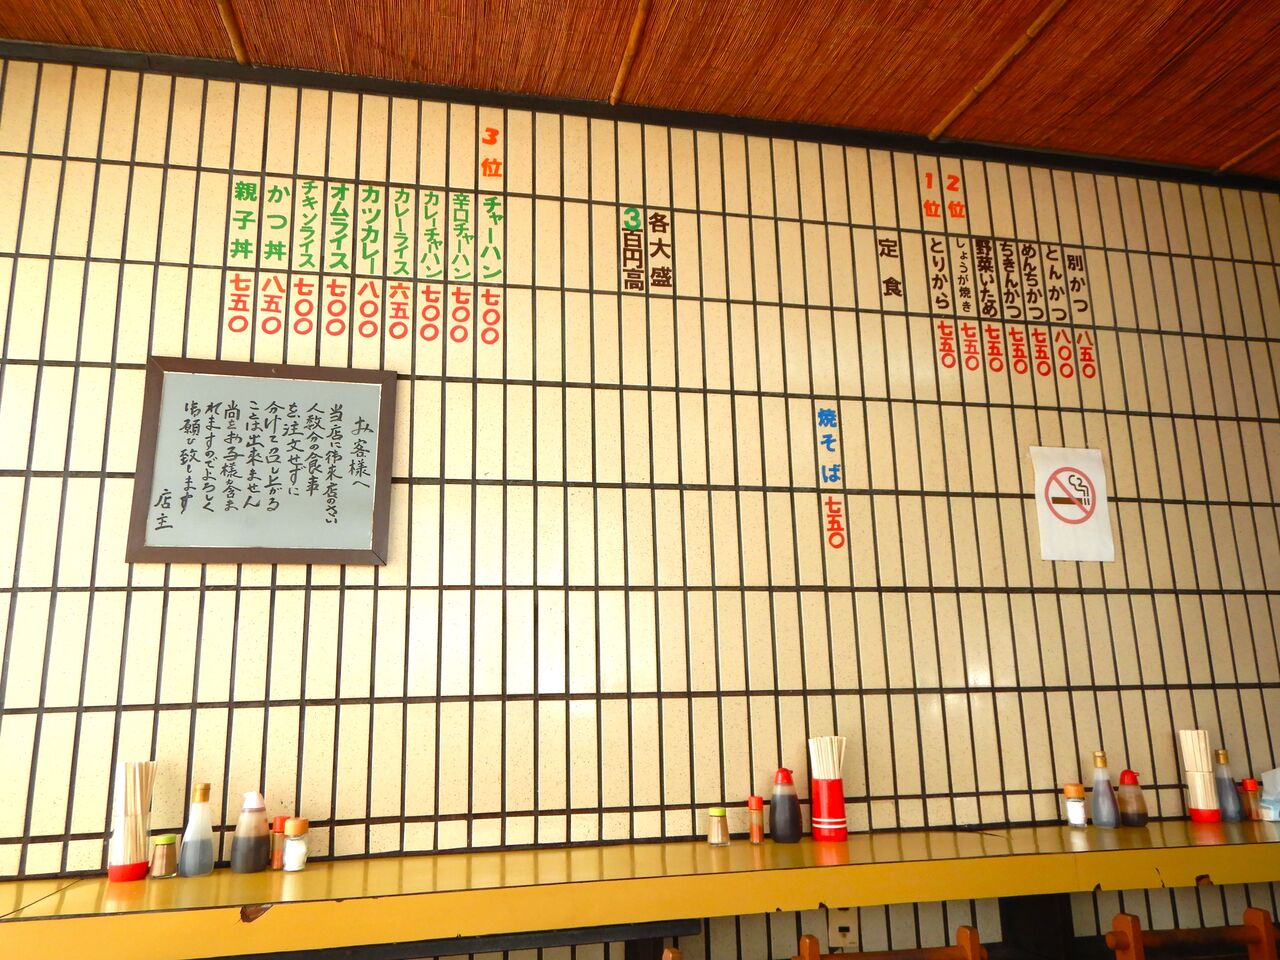 別かつ 八五〇
とんかつ 八〇〇
めんちかつ 七五〇
ちきんかつ 七五〇
野菜いため 七五〇
2位 しょうが焼き 七五〇
1位 とりから 七五〇
定食
焼そば 七五〇
各大盛
3百円高
3位 チャーハン 七〇〇
辛口チャーハン 七〇〇
カレーチャーハン 七〇〇
カレーライス 六五〇
カツカレー 八〇〇
オムライス 七〇〇
チキンライス 七〇〇
かつ丼 八五〇
親子丼 七五〇
お客様へ
当店に御来店のさい
人数分の食事
を注文せずに
分けて召し上がる
ことは出来ません
尚お子様も含ま
れますのでよろしく
御願い致します
店主